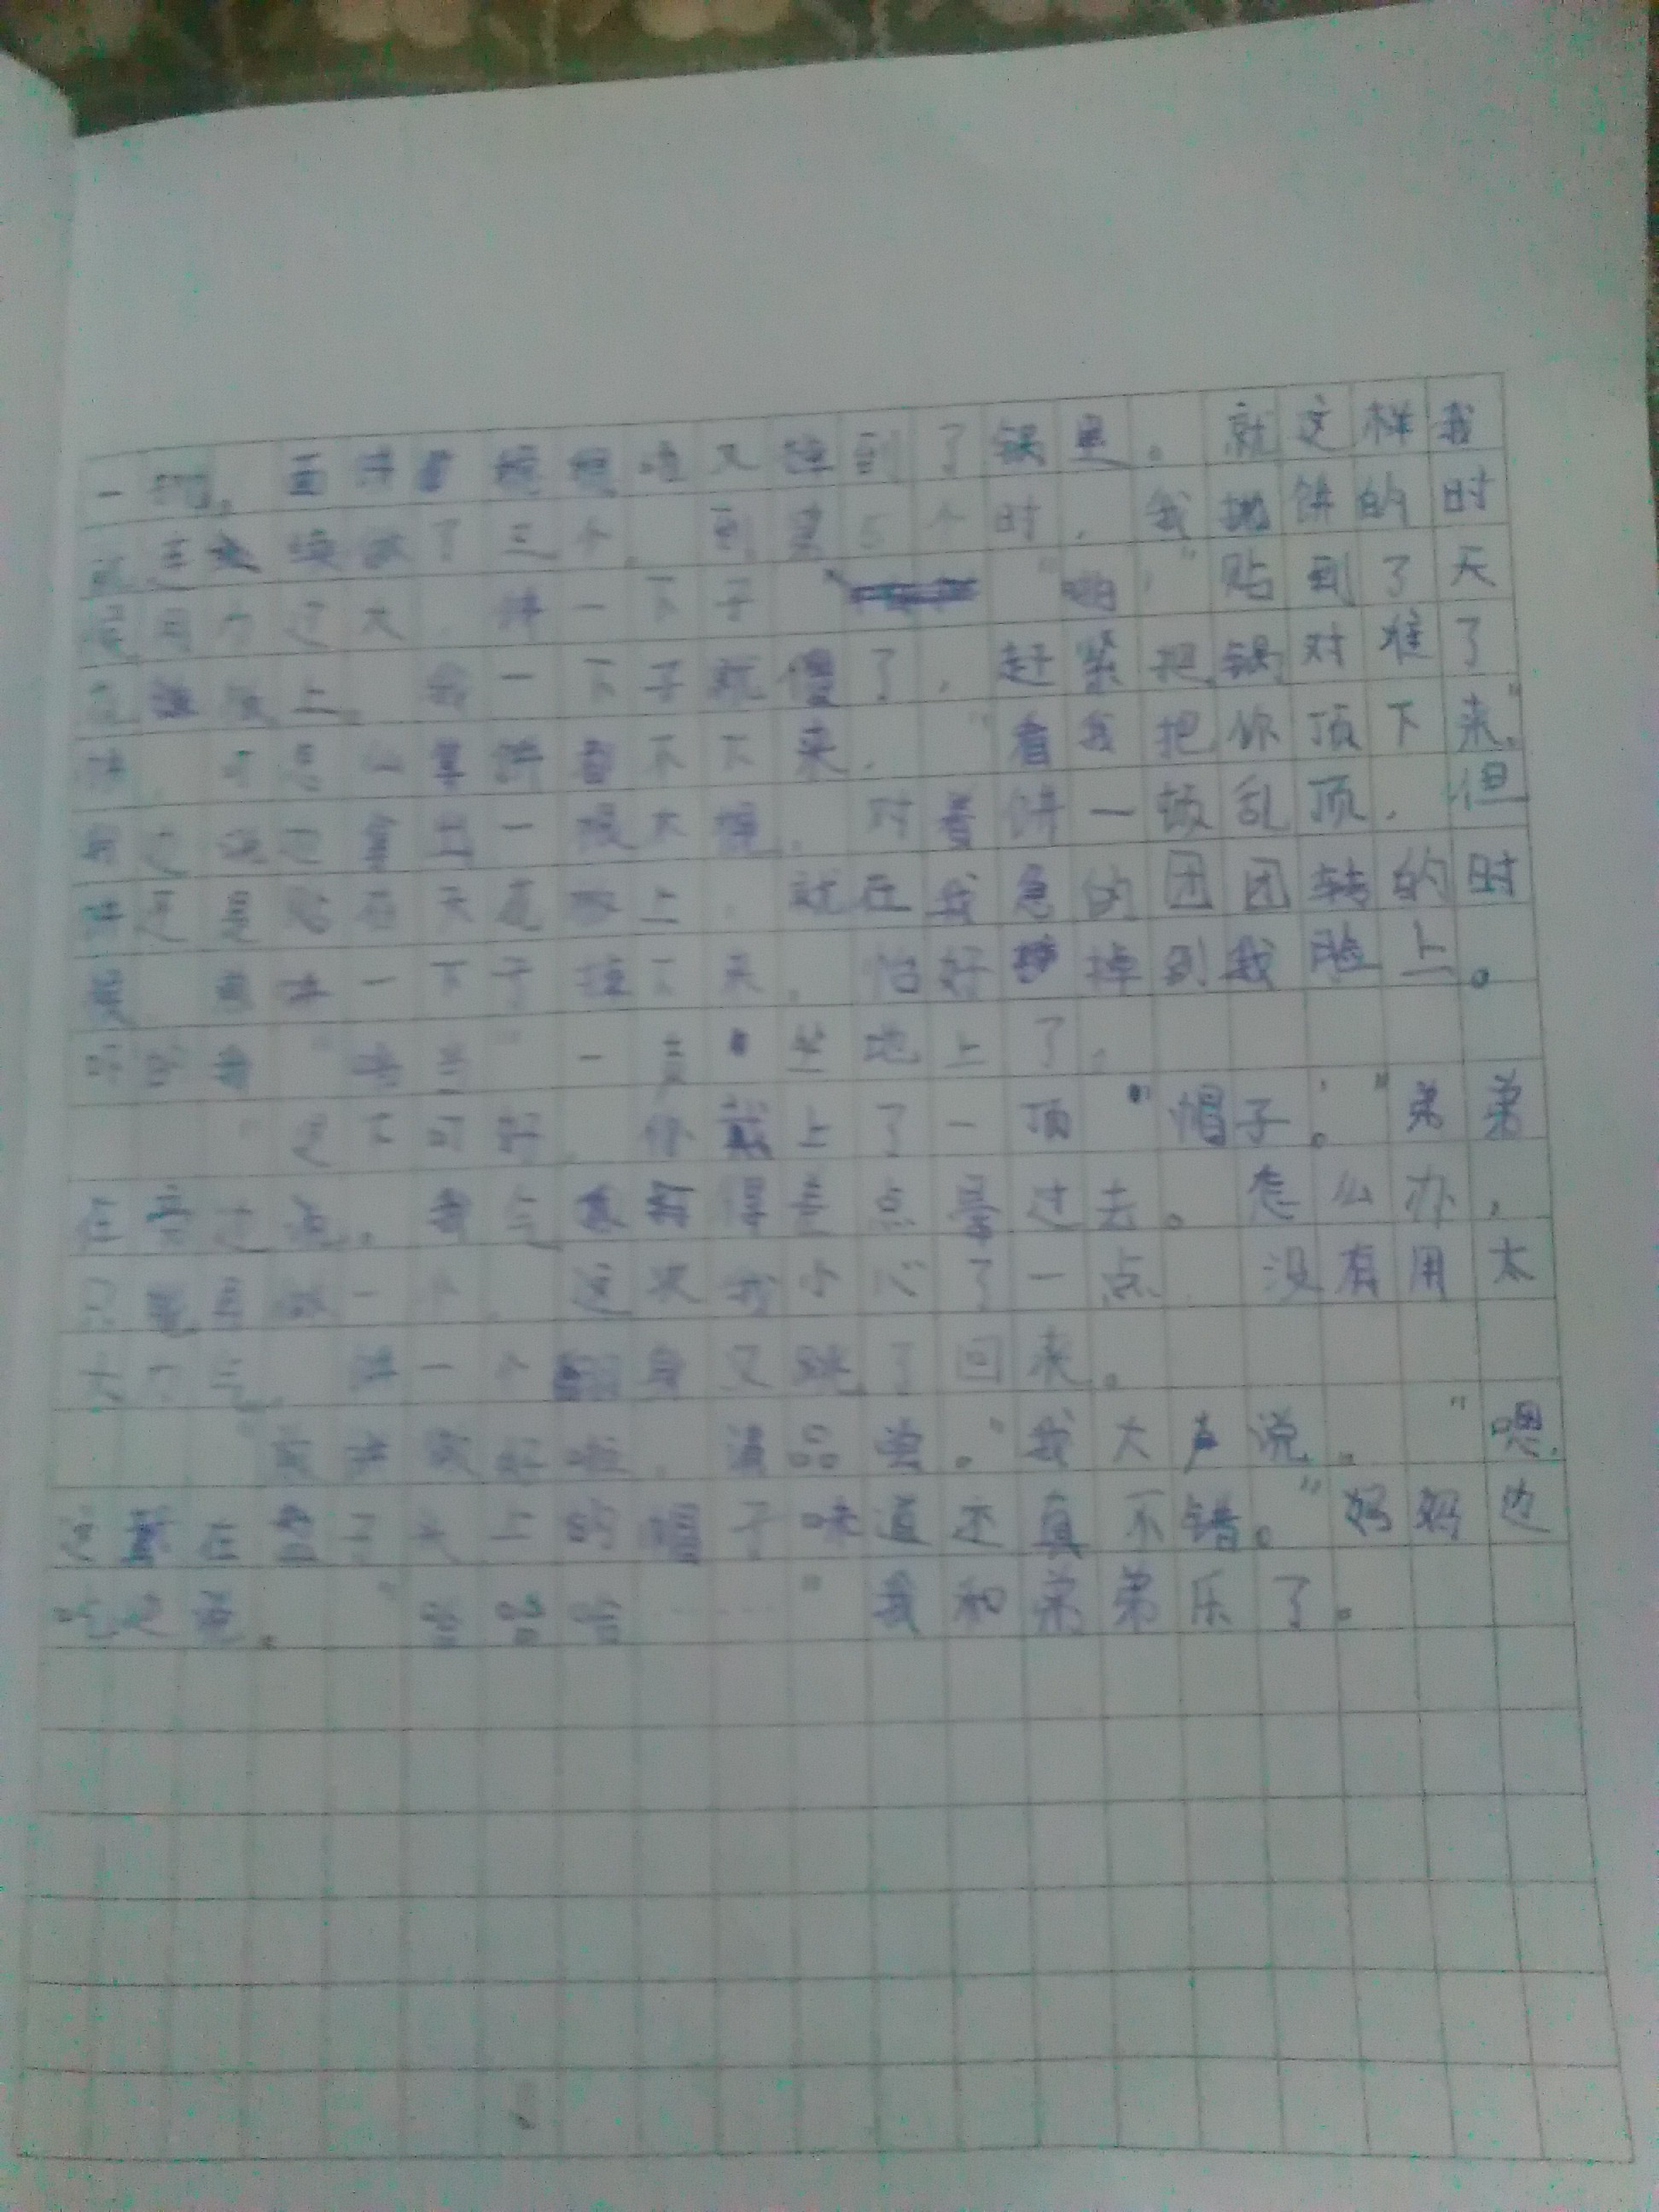 一抛。面饼稳稳地又掉到了锅里。就这样我
就连续做了三个,到第5个时,我抛饼的时
候用力过大,饼一下子"啪"贴到了天
花板上。我一下子就傻了,赶紧把锅对准了
饼,可怎么等饼都不下来,"看我把你顶下来。"
我边说边拿出一根木棍,对着饼一顿乱顶,但
饼还是贴在天花板上,就在我急的团团转的时
候,饼一下子掉下来,恰好掉到我脸上。
吓的我"一声坐地上了。
"这下可好,你戴上了一顶"帽子。"弟弟
在旁边说。我气得差点晕过去。怎么办,
只能再做一个,这次我小心了一点,没有用太
大力气。饼一个翻身又跳了回来。
"煎饼做好啦,请品尝。"我大声说。"嗯,
这戴在头上的帽子味道还真不错。"妈妈边
吃边说。"哈哈哈……"我和弟弟乐了。